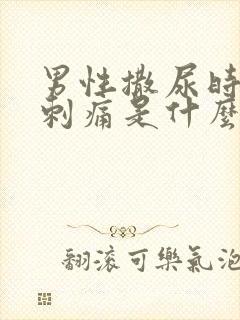 男性撒尿時
刺痛是什麼
翻滾可樂氣泡